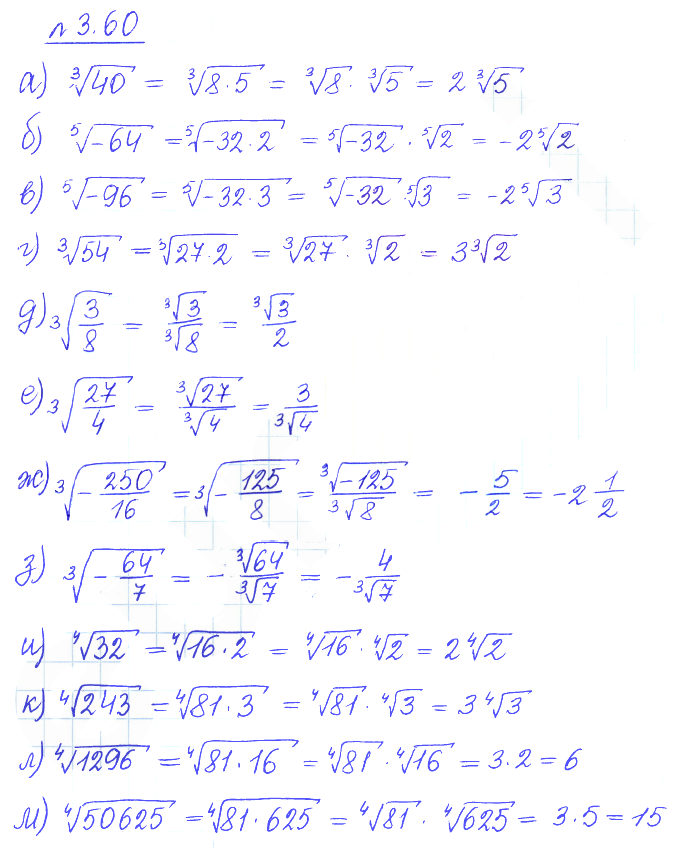 № 3.60
а) ∛40 = ∛(8·5) = ∛8 · ∛5 = 2∛5
б) ⁵√(-64) = ⁵√(-32·2) = ⁵√(-32) · ⁵√2 = -2⁵√2
в) ⁵√(-96) = ⁵√(-32·3) = ⁵√(-32) · ⁵√3 = -2⁵√3
г) ∛54 = ∛(27·2) = ∛27 · ∛2 = 3∛2
д) ∛(3/8) = ∛3/∛8 = ∛3/2
е) ∛(27/4) = ∛27/∛4 = 3/∛4
ж) ∛(-250/16) = ∛(-125/8) = ∛(-125)/∛8 = -5/2 = -2 1/2
з) ∛(-64/7) = -∛64/∛7 = -4/∛7
и) ⁴√32 = ⁴√(16·2) = ⁴√16 · ⁴√2 = 2⁴√2
к) ⁴√243 = ⁴√(81·3) = ⁴√81 · ⁴√3 = 3⁴√3
л) ⁴√1296 = ⁴√(81·16) = ⁴√81 · ⁴√16 = 3·2 = 6
м) ⁴√50625 = ⁴√(81·625) = ⁴√81 · ⁴√625 = 3·5 = 15